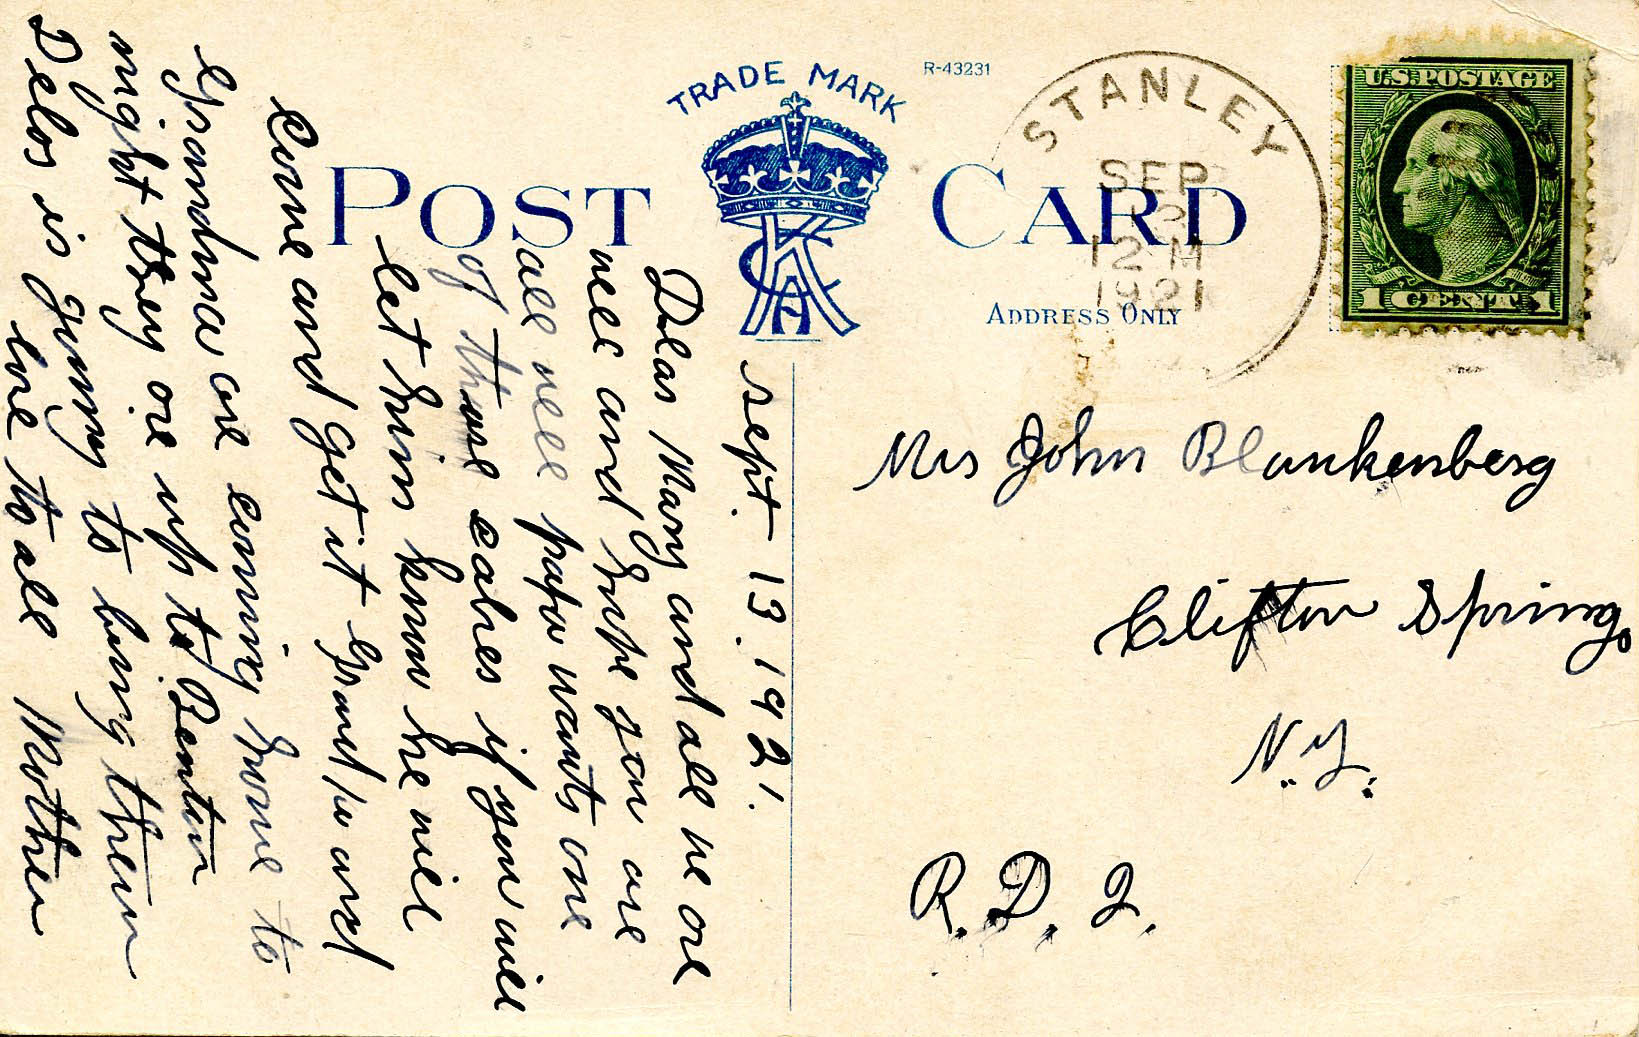 TRADE MARK
R-43231
POST CARD
ADDRESS ONLY
STANLEY
SEP
12 M
1921
U.S. POSTAGE
1 CENT 1
Sept. 13. 1921.
Dear Mary and all we are
well and hope you are
all well papa wants one
of those calves if you will
let him know he will
Come and get it Grandpa and
Grandma are coming home to
night they are up to Benton
Delos is going to bring them
love to all Mother
Mrs John Blankenberg
Clifton Springs
N.Y.
R.D. 2.